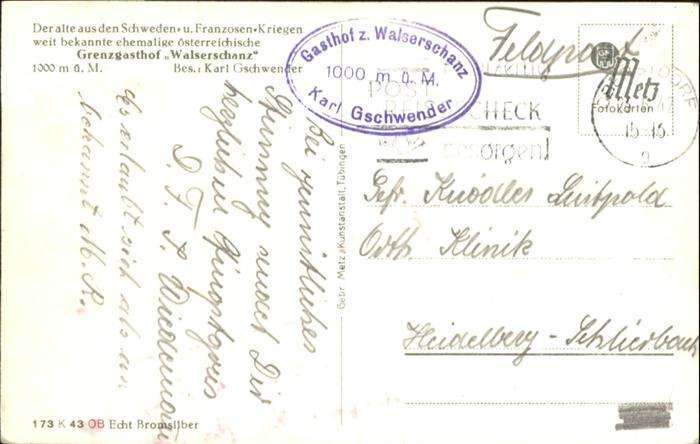 Der alte aus den Schweden- u. Franzosen-Kriegen
weit bekannte ehemalige österreichische
Grenzgasthof „Walserschanz“
1000 m ü. M. Bes.: Karl Gschwender
Gasthof z. Walserschanz
1000 m ü. M.
Karl Gschwender
Feldpost
POST
REISESCHECK
besorgen!
15-16
9
Metz
FOTOKARTEN
Gefr. Knödler Luitpold
Orth. Klinik
Heidelberg - Schlierbach
Gebr. Metz, Kunstanstalt, Tübingen
Bei gemütlicher
Stimmung sendet Dir
herzlichen Pfingstgruss
D. F. P. Wiedemann
Es erlaubt sich als un
bekannt M. R.
173 K 43 OB Echt Bromsilber